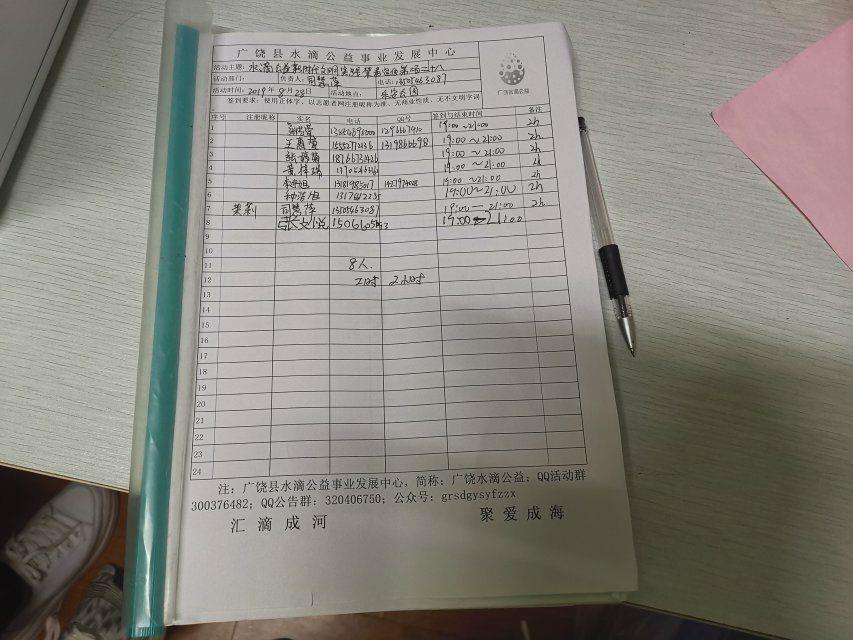 广饶县水滴公益事业发展中心
活动主题：水滴公益新时代文明实践禁毒宣传第一百二十八
活动部门： 负责人：司慧萍 电话：13505463087
活动时间：2019年8月28日 活动地点：乐安公园
签到要求：使用正体字，以志愿者网注册昵称为准、无商业性质、无不文明字词
广饶水滴公益
序号 注册昵称 实名 电话 QQ号 签到与结束时间 备注
1 19:00~21:00 2h
2 王惠莹 15552772236 1319866698 19:00~21:00 2h
3 18766731426 19:00~21:00 2h
4 19:00~21:00 2h
5 13181985017 19:00~21:00 2h
6 19:00~21:00 2h
7 茉莉 司慧萍 13505463087 19:00—21:00 2h
8 张文悦 19:00—21:00
9
10
11 8人.
12 2小时
13
14
15
16
17
18
19
20
21
22
23
24
注：广饶县水滴公益事业发展中心，简称：广饶水滴公益；QQ活动群
300376482；QQ公告群：320406750；公众号：grsdgysyfzzx
汇滴成河 聚爱成海